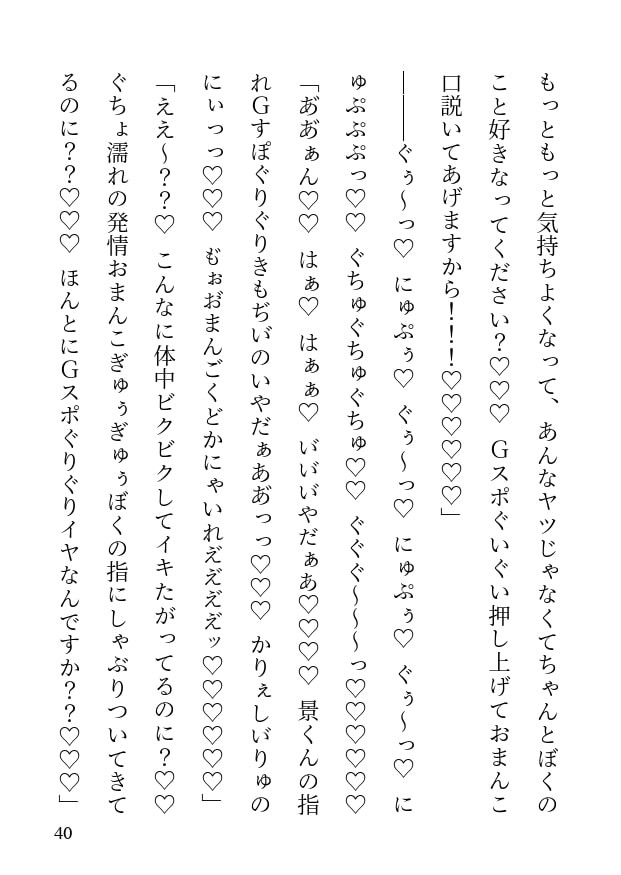 もっともっと気持ちよくなって、あんなヤツじゃなくてちゃんとぼくの
こと好きなってください？♡♡♡　Ｇスポぐいぐい押し上げておまんこ
口説いてあげますから！！！♡♡♡♡♡♡」
―――ぐぅ～っ♡　にゅぷぅ♡　ぐぅ～っ♡　にゅぷぅ♡　ぐぅ～っ♡　に
ゅぷぷぷっ♡♡　ぐちゅぐちゅぐちゅ♡♡　ぐぐぐ～～～っ♡♡♡♡♡♡
「あ゙あ゙ぁん♡♡　はぁ♡　はぁぁ♡　い゙い゙い゙やだぁあ♡♡♡♡　景くんの指
れＧすぽぐりぐりきもぢい゙のいやだぁああ゙っっ♡♡♡　かりぇしい゙りゅの
にぃっっ♡♡♡　も゙ぉお゙まんごくどかにゃいれえ゙え゙え゙え゙ッ♡♡♡♡♡♡」
「ええ～？？♡　こんなに体中ビクビクしてイキたがってるのに？♡♡
ぐちょ濡れの発情おまんこぎゅぅぎゅぅぼくの指にしゃぶりついてきて
るのに？？♡♡♡　ほんとにＧスポぐりぐりイヤなんですか？？♡♡♡」
40